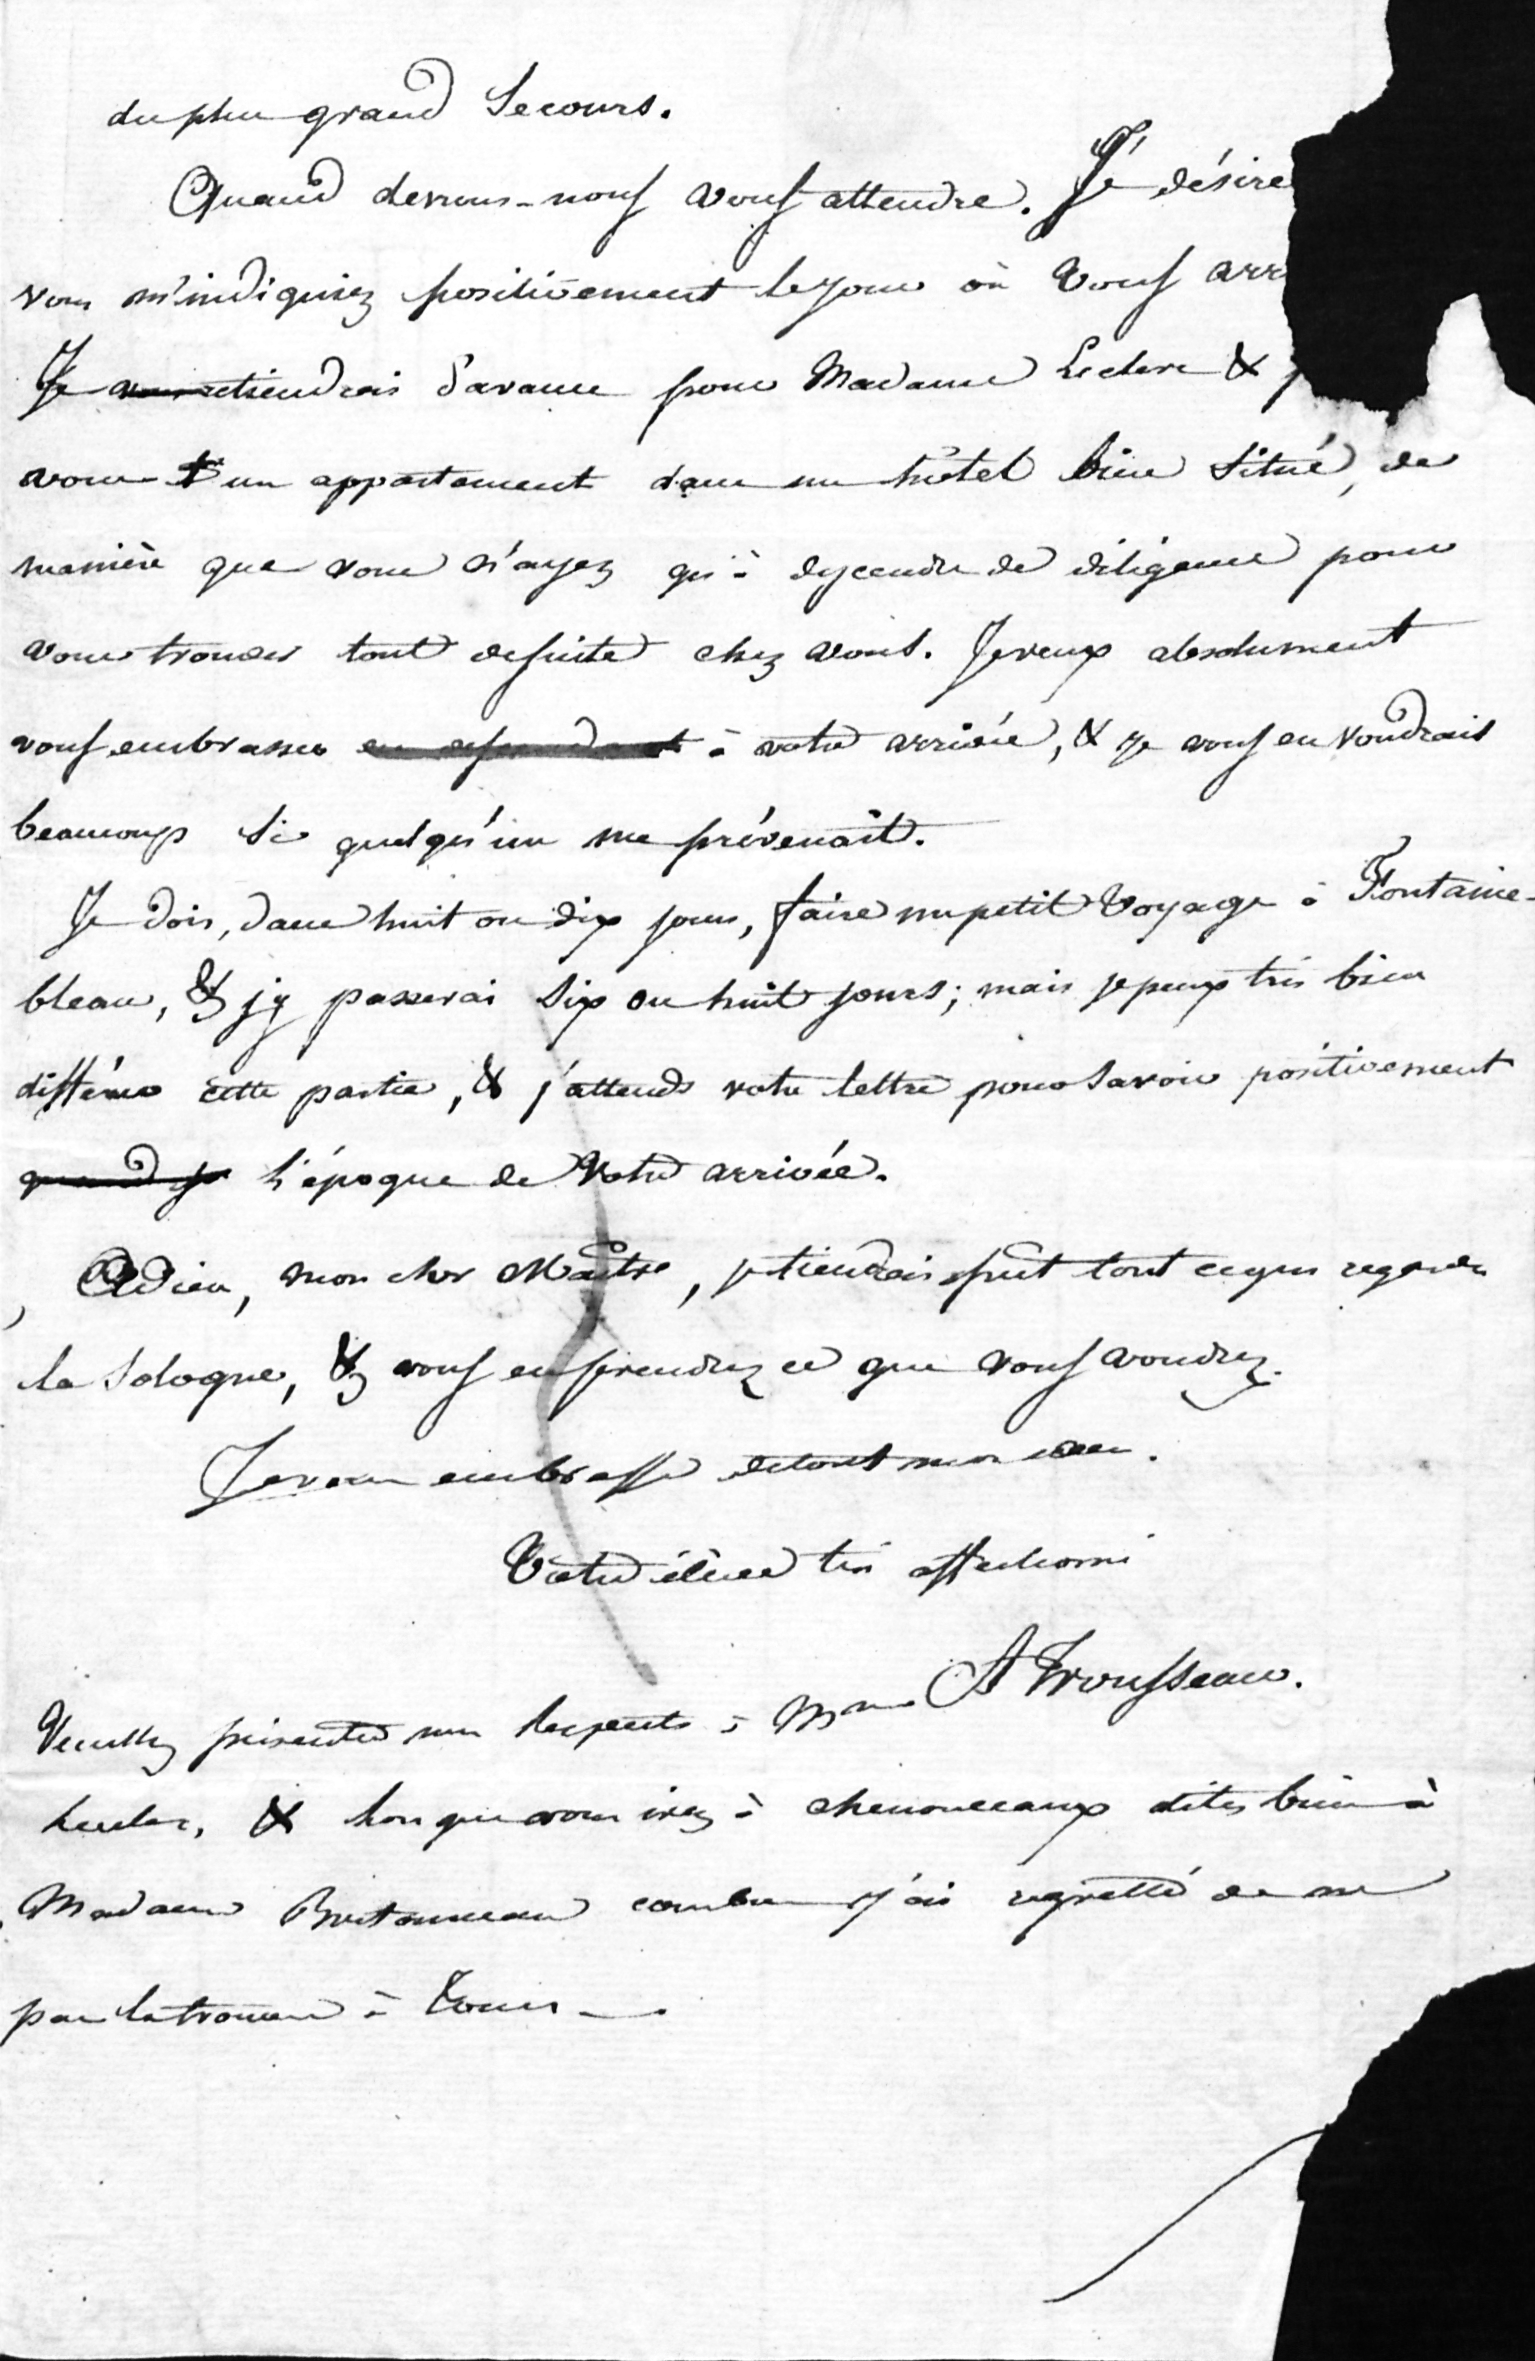 du plus grand Secours.
Quand devrons-nous vous attendre. Je désire
vous m'indiquiez positivement le jour où vous arr
Je retiendrais d'avance pour Madame Leclerc &
vous un appartement dans un hôtel bien Situé, de
manière que vous n'ayez qu'à descendre de diligence pour
vous trouver tout desuite chez vous. Je veux absolument
vous embrasser à votre arrivée, & je vous en voudrais
beaucoup Si quelqu'un me prévenait.
Je dois, dans huit ou dix jours, faire un petit voyage à Fontaine-
bleau, & j'y passerai Six ou huit jours; mais je peux très bien
différer cette partie, & j'attends votre lettre pour Savoir positivement
quand je l'époque de Votre arrivée.
Adieu, mon cher Maître, je tiendrai prêt tout ce qui regarde
la Sologne, & vous en prendrez ce que vous voudrez.
Je vous embrasse de tout mon cœur.
Votre élève très affectionné
A Trousseau.
Veuillez présenter mes respects à Mme
Leclerc, & lorsque vous irez à chenonceaux dites bien à
Madame Bretonneau combien j'ai regretté de ne
pas la trouver à Tours.